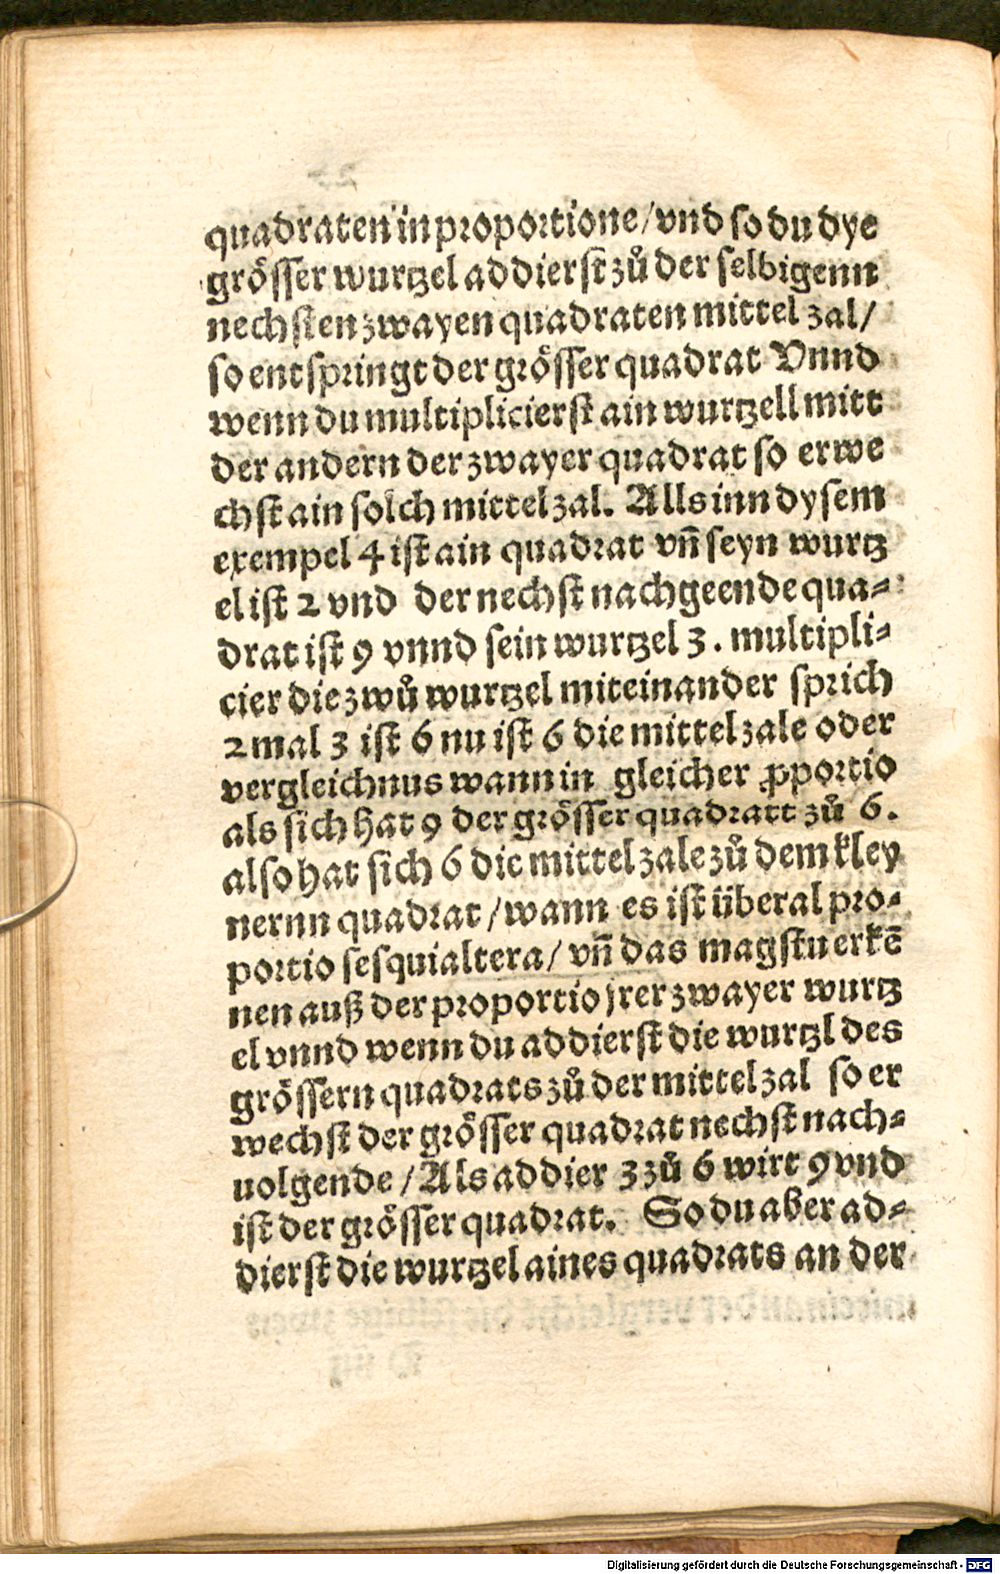 quadraten in proportione/vnd so du dye
grösser wurtzel addierst zů der selbigenn
nechsten zwayen quadraten mittel zal/
so entspringt der grösser quadrat Vnnd
wenn du multiplicierst ain wurtzell mitt
der andern der zwayer quadrat so erwe
chst ain solch mittel zal. Alls inn dysem
exempel 4 ist ain quadrat vñ seyn wurtz
el ist 2 vnd der nechst nachgeende qua-
drat ist 9 vnnd sein wurtzel 3. multipli-
cier die zwů wurtzel miteinander sprich
2 mal 3 ist 6 nu ist 6 die mittel zale oder
vergleichnus wann in gleicher ꝓportio
als sich hat 9 der grösser quadratt zů 6.
also hat sich 6 die mittel zale zů dem kley
nernn quadrat/wann es ist überal pro-
portio sesquialtera/ vñ das magstu erkē
nen auß der proportio jrer zwayer wurtz
el vnnd wenn du addierst die wurtzl des
grössern quadrats zů der mittel zal so er
wechst der grösser quadrat nechst nach-
uolgende/Als addier 3 zů 6 wirt 9 vnd
ist der grösser quadrat. So du aber ad-
dierst die wurtzel aines quadrats an der
Digitalisierung gefördert durch die Deutsche Forschungsgemeinschaft - DFG